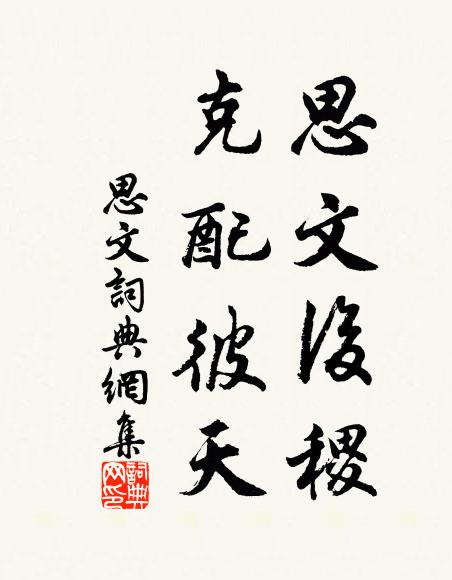 思文後稷
克配彼天
思文詞典網集
詞典网印